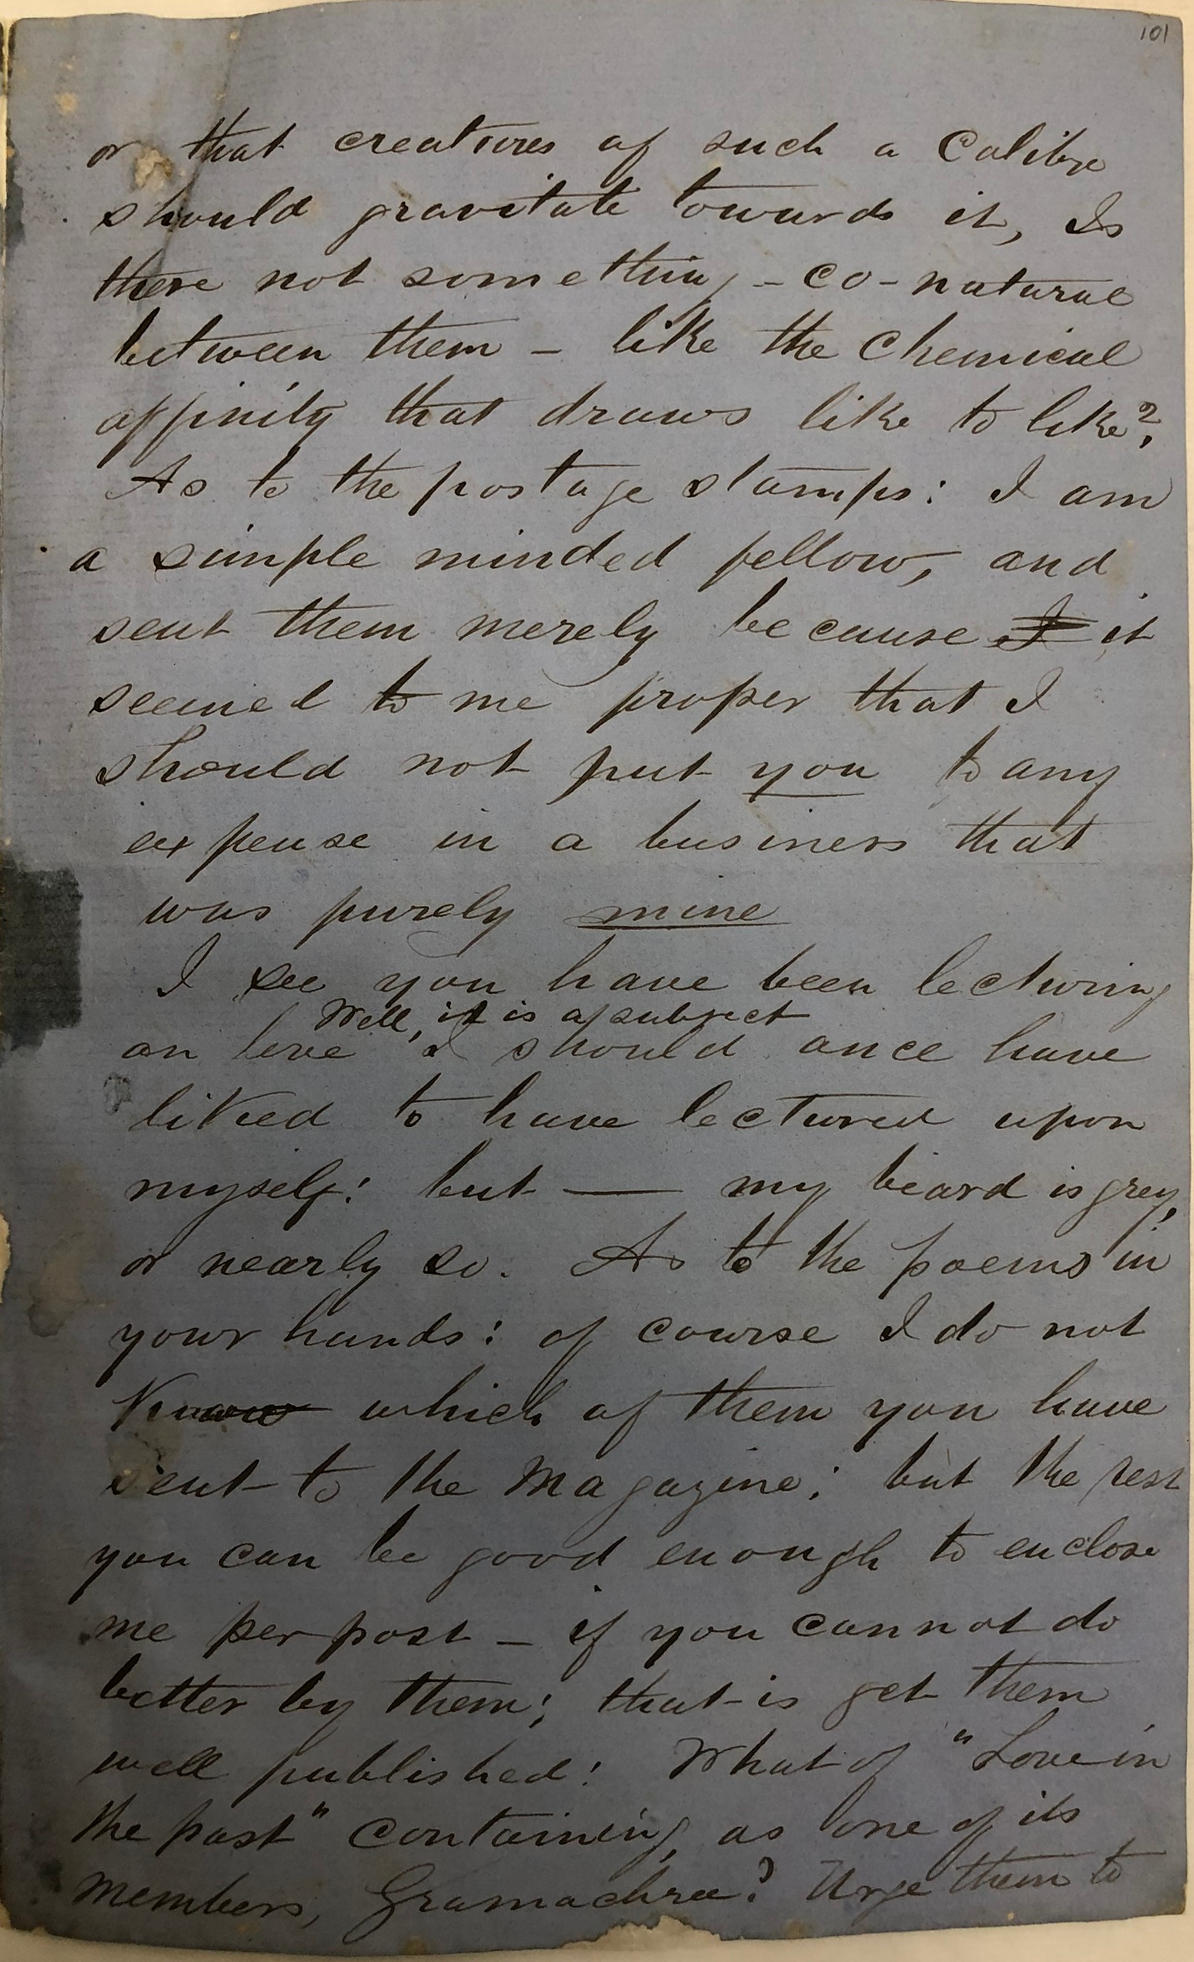 101
or that creatures of such a calibre
should gravitate towards it, Is
there not something - co-natural
between them - like the chemical
affinity that draws like to like?,
As to the postage stamps: I am
a simple minded fellow, and
sent them merely because I it
seemed to me proper that I
should not put you to any
expense in a business that
was purely mine
I see you have been lecturing
Well, it is a subject
on love I should once have
liked to have lectured upon
myself: but — my beard is grey,
or nearly so. As to the poems in
your hands: of course I do not
Know which of them you have
sent to the Magazine; but the rest
you can be good enough to enclose
me per post - if you cannot do
better by them; that is get them
well published: What of "Love in
the past" containing, as one of its
members, Gramachree? Urge them to